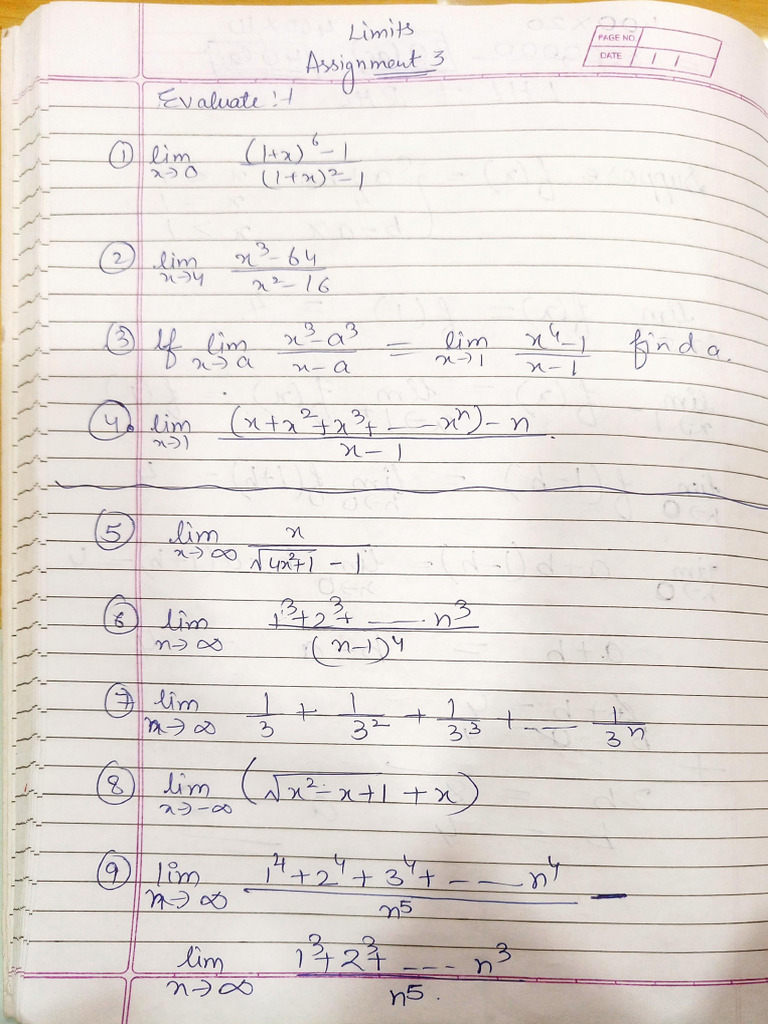 Limits
Assignment 3
PAGE NO.
DATE
Evaluate :-
① lim x→0 ((1+x)^6 - 1)/((1+x)^2 - 1)
② lim x→4 (x^3 - 64)/(x^2 - 16)
③ If lim x→a (x^3 - a^3)/(x - a) = lim x→1 (x^4 - 1)/(x - 1) find a.
④. lim x→1 ((x + x^2 + x^3 + - - - x^n) - n)/(x - 1).
⑤ lim x→∞ x/(√(4x^2+1) - 1)
⑥ lim n→∞ (1^3 + 2^3 + - - - n^3)/(n-1)^4
⑦ lim n→∞ 1/3 + 1/3^2 + 1/3^3 + - - - 1/3^n
⑧ lim x→-∞ (√(x^2 - x + 1) + x)
⑨ lim n→∞ (1^4 + 2^4 + 3^4 + - - - n^4)/n^5 -
lim n→∞ (1^3 + 2^3 + - - - n^3)/n^5.